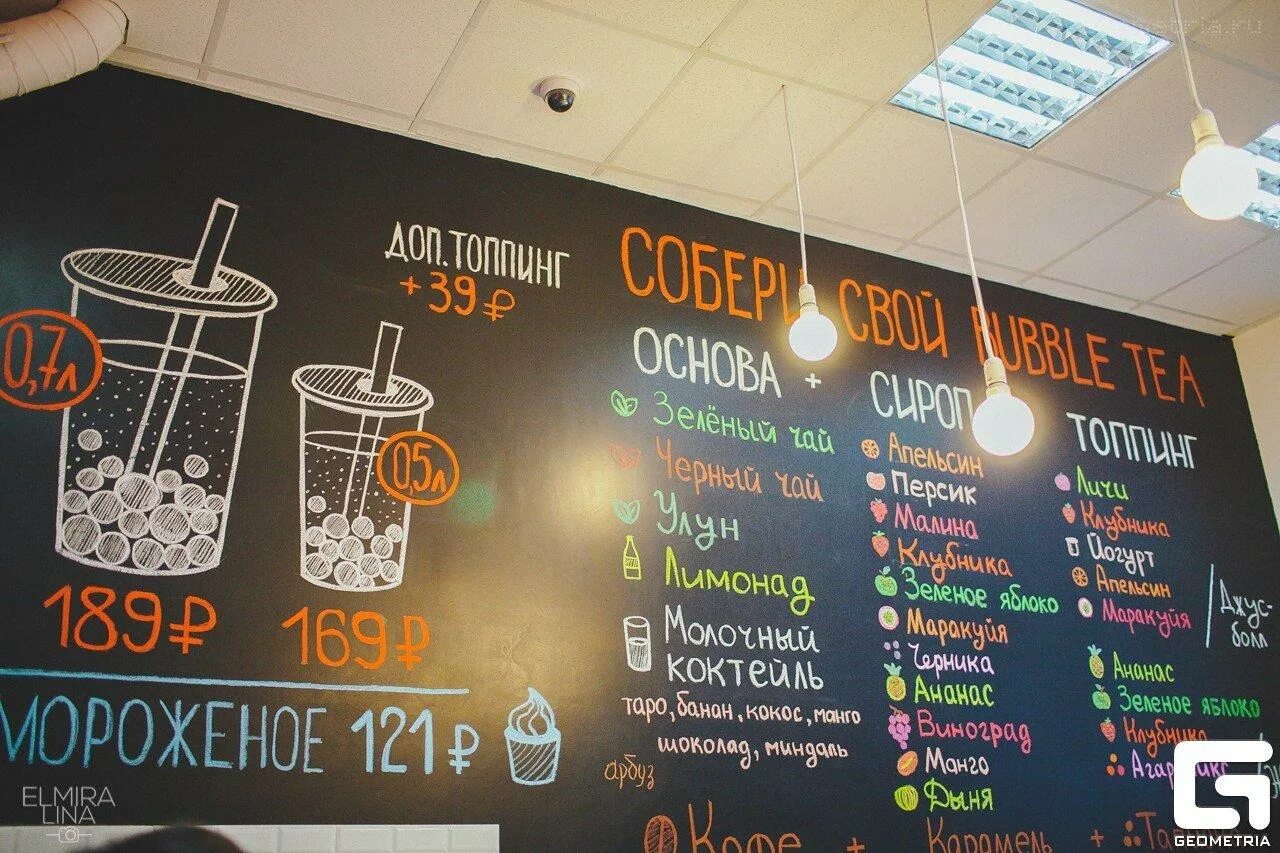 ДОП. ТОППИНГ
+39₽
0,7л
0,5л
189₽
169₽
МОРОЖЕНОЕ 121₽
СОБЕРИ СВОЙ BUBBLE TEA
ОСНОВА +
Зелёный чай
Черный чай
Улун
Лимонад
Молочный
коктейль
таро, банан, кокос, манго
шоколад, миндаль
арбуз
СИРОП
Апельсин
Персик
Малина
Клубника
Зеленое яблоко
Маракуйя
Черника
Ананас
Виноград
Манго
Дыня
ТОППИНГ
Личи
Клубника
Йогурт
Апельсин
Маракуйя
Джус-
болл
Ананас
Зеленое яблоко
Клубника
Кофе + Карамель +
ELMIRA
LINA
GEOMETRIA